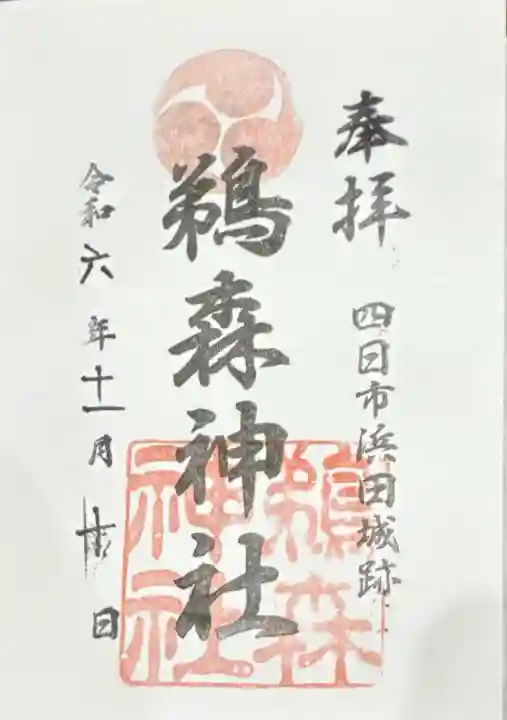 奉拝
四日市浜田城跡
鵜森神社
鵜森
神社
令和六年十一月 日